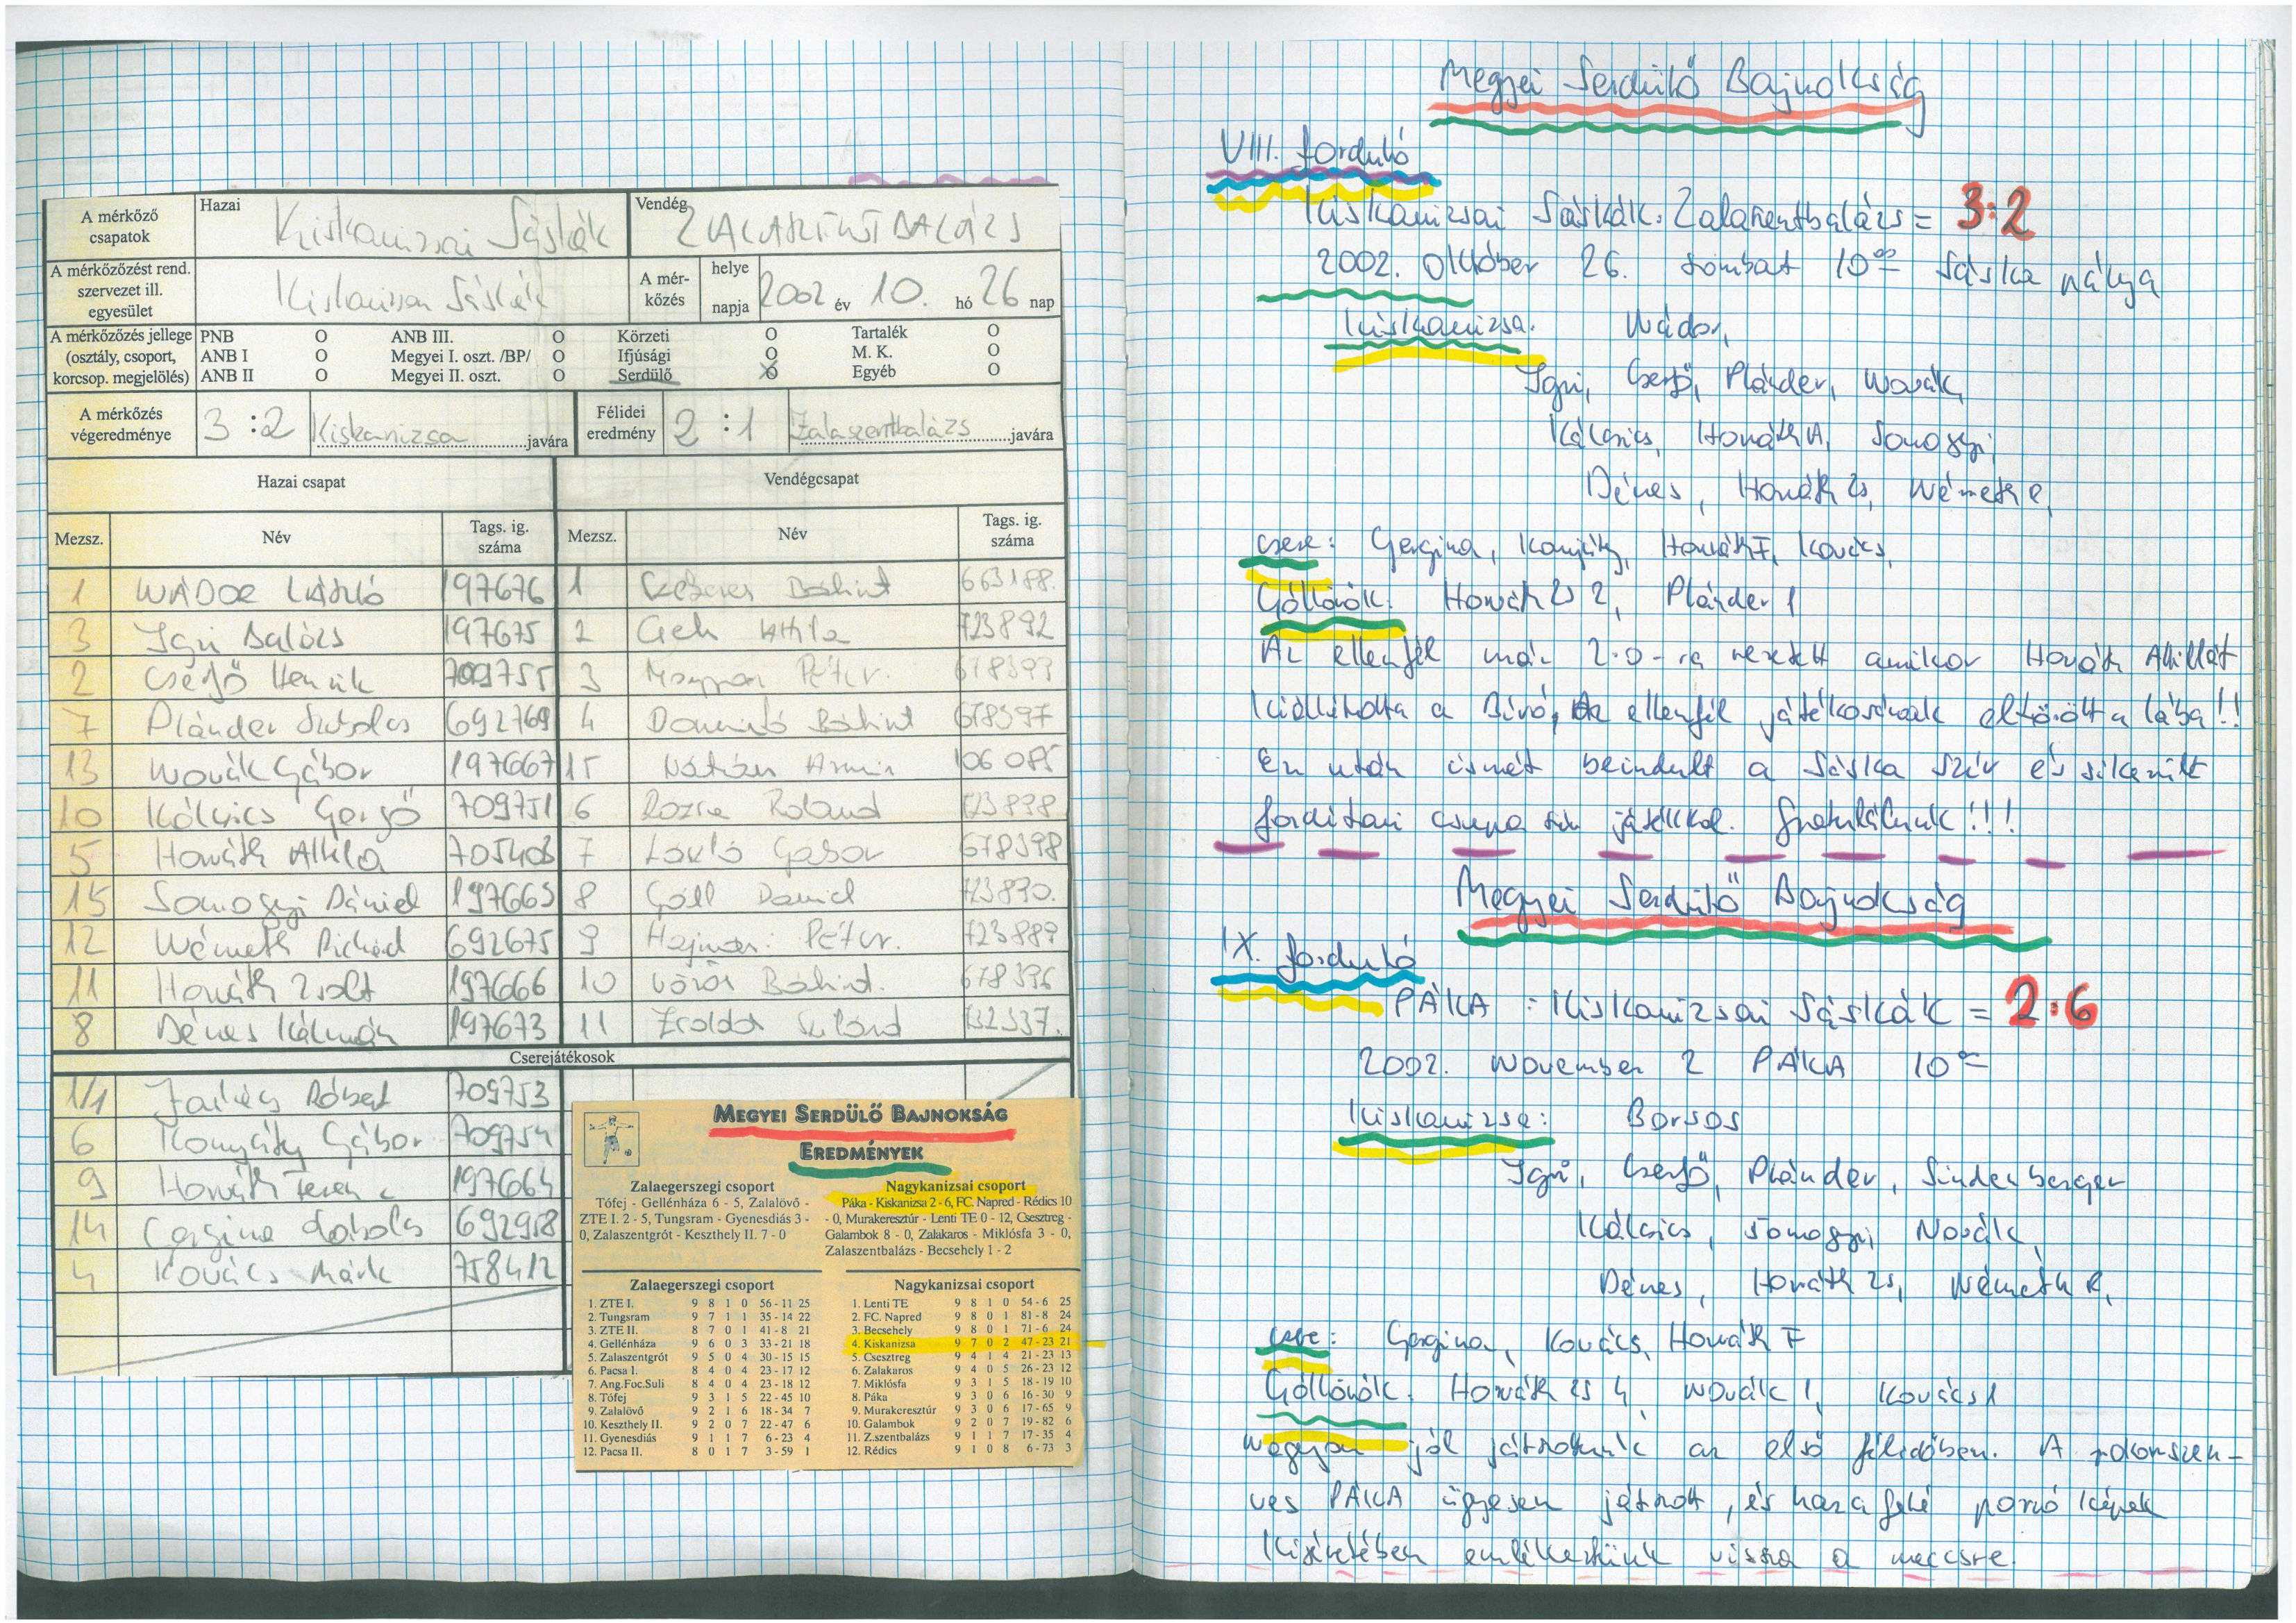 A mérkőző csapatok
Hazai Kiskanizsai Sáskák
Vendég ZALASZENTBALÁZS
A mérkőzőzést rend. szervezet ill. egyesület
Kiskanizsai Sáskák
A mérkőzés helye
napja 2002 év 10. hó 26 nap
A mérkőzőzés jellege (osztály, csoport, korcsop. megjelölés)
PNB O ANB III. O Körzeti O Tartalék O
ANB I O Megyei I. oszt. /BP/ O Ifjúsági O M. K. O
ANB II O Megyei II. oszt. O Serdülő O Egyéb O
A mérkőzés végeredménye 3:2 Kiskanizsa javára
Félidei eredmény 2:1 Zalaszentbalázs javára
Hazai csapat Vendégcsapat
Mezsz. Név Tags. ig. száma Mezsz. Név Tags. ig. száma
1 WÁDOR LÁSZLÓ 197676 1 Szekeres Bálint 663188.
3 Igri Balázs 197675 2 Cseh Attila 723892
2 Cserfő Henrik 709755 3 Magyar Péter. 678399
7 Plánder Szabolcs 692769 4 Dominkó Bálint 678397
13 Novák Gábor 197667 15 Nátrán Armin 106085
10 Kálcsics Gergő 709751 6 Rozsa Roland 723898
5 Horváth Attila 705403 7 László Gábor 678398
15 Somogyi Dániel 197665 8 Góll Dániel 723890.
12 Németh Richárd 692675 9 Hajmási Péter. 723889
11 Horváth Zsolt 197666 10 Vörös Bálint. 678396
8 Dénes Kálmán 197673 11 Zsoldos 732337.
Cserejátékosok
1/1 Róbert 709753
6 Konyáty Gábor 709754
9 Horváth Ferenc 197664
14 Gergina Szabolcs 692958
4 Kovács Márk 758412
MEGYEI SERDÜLŐ BAJNOKSÁG
EREDMÉNYEK
Zalaegerszegi csoport
Tófej - Gellénháza 6 - 5, Zalalövő -
ZTE I. 2 - 5, Tungsram - Gyenesdiás 3 -
0, Zalaszentgrót - Keszthely II. 7 - 0
Nagykanizsai csoport
Páka - Kiskanizsa 2 - 6, FC. Napred - Rédics 10
- 0, Murakeresztúr - Lenti TE 0 - 12, Csesztreg -
Galambok 8 - 0, Zalakaros - Miklósfa 3 - 0,
Zalaszentbalázs - Becsehely 1 - 2
Zalaegerszegi csoport
1. ZTE I. 9 8 1 0 56 - 11 25
2. Tungsram 9 7 1 1 35 - 14 22
3. ZTE II. 8 7 0 1 41 - 8 21
4. Gellénháza 9 6 0 3 33 - 21 18
5. Zalaszentgrót 9 5 0 4 30 - 15 15
6. Pacsa I. 8 4 0 4 23 - 17 12
7. Ang.Foc.Suli 8 4 0 4 23 - 18 12
8. Tófej 9 3 1 5 22 - 45 10
9. Zalalövő 9 2 1 6 18 - 34 7
10. Keszthely II. 9 2 0 7 22 - 47 6
11. Gyenesdiás 9 1 1 7 6 - 23 4
12. Pacsa II. 8 0 1 7 3 - 59 1
Nagykanizsai csoport
1. Lenti TE 9 8 1 0 54 - 6 25
2. FC. Napred 9 8 0 1 81 - 8 24
3. Becsehely 9 8 0 1 71 - 6 24
4. Kiskanizsa 9 7 0 2 47 - 23 21
5. Csesztreg 9 4 1 4 21 - 23 13
6. Zalakaros 9 4 0 5 26 - 23 12
7. Miklósfa 9 3 1 5 18 - 19 10
8. Páka 9 3 0 6 16 - 30 9
9. Murakeresztúr 9 3 0 6 17 - 65 9
10. Galambok 9 2 0 7 19 - 82 6
11. Z.szentbalázs 9 1 1 7 17 - 35 4
12. Rédics 9 1 0 8 6 - 73 3
Megyei Serdülő Bajnokság
VIII. forduló
Kiskanizsai Sáskák : Zalaszentbalázs = 3:2
2002. Október 26. szombat 10ºº Sáska pálya
Kiskanizsa: Wádor,
Igri, Cserfő, Plánder, Novák,
Kálcsics, Horváth A, Somogyi,
Dénes, Horváth Zs, Németh R,
csere: Gergina, Konyáty, Horváth F, Kovács,
Góllövők: Horváth Zs 2, Plánder 1
Az ellenfél már 2:0-ra vezetett amikor Horváth Attilát
kiállította a Bíró, Az ellenfél játékosának eltörött a lába!!
Ez után ismét beindult a Sáska szív és sikerült
fordítani csupa szív játékkal. Gratulálunk!!!
Megyei Serdülő Bajnokság
IX. forduló
PÁKA : Kiskanizsai Sáskák = 2:6
2002. November 2 PÁKA 10ºº
Kiskanizsa: Borsos
Igri, Cserfő, Plánder, Sinderberger
Kálcsics, Somogyi, Novák,
Dénes, Horváth Zs, Németh R,
csere: Gergina, Kovács, Horváth F
Góllövők: Horváth Zs 4, Novák 1, Kovács 1
Nagyon jól játszottunk az első félidőben. A rokonszen-
ves PÁKA ügyesen játszott, és hazafelé pornó képek
kíséretében emlékeztünk vissza a meccsre.